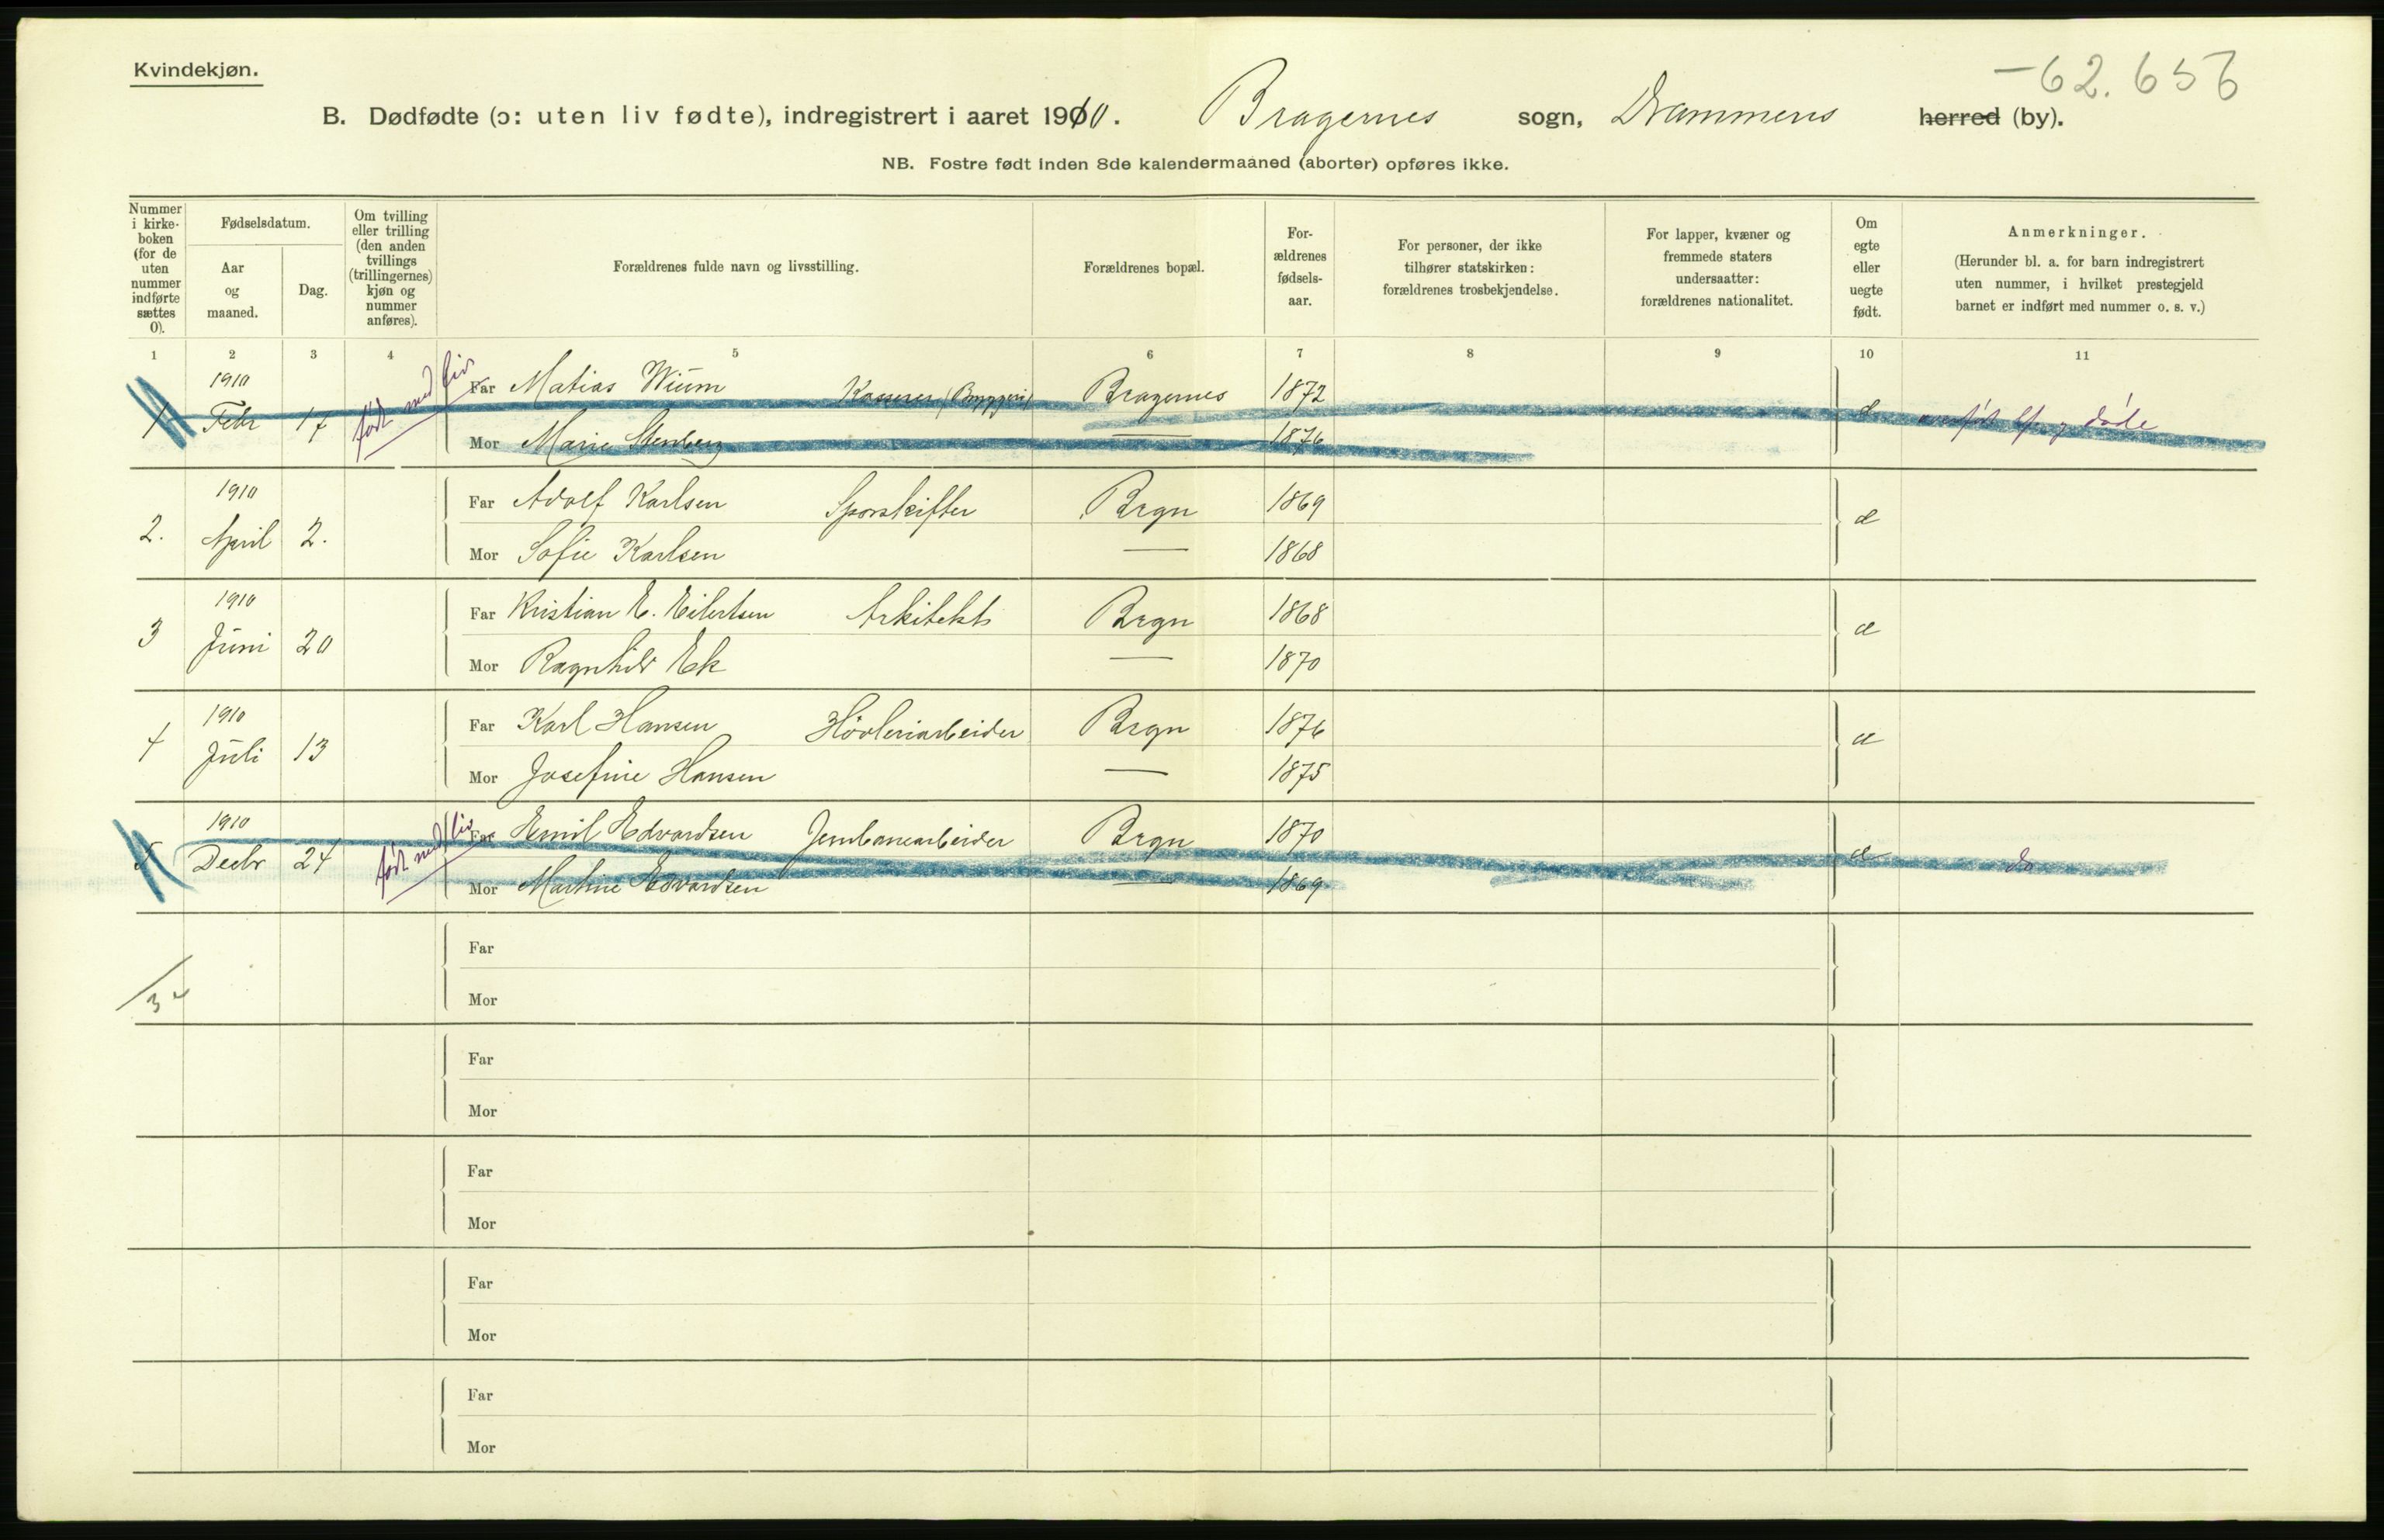 Kvindekjøn.
-62.656
B. Dødfødte (ɔ: uten liv fødte), indregistrert i aaret 1910. Bragernes sogn, Drammens herred (by).
NB. Fostre født inden 8de kalendermaaned (aborter) opføres ikke.
Nummer i kirke-boken (for de uten nummer indførte sættes 0).
Fødselsdatum.
Aar og maaned.
Dag.
Om tvilling eller trilling (den anden tvillings (trillingernes) kjøn og nummer anføres).
Forældrenes fulde navn og livsstilling.
Forældrenes bopæl.
For-ældrenes fødsels-aar.
For personer, der ikke tilhører statskirken: forældrenes trosbekjendelse.
For lapper, kvæner og fremmede staters undersaatter: forældrenes nationalitet.
Om egte eller uegte født.
Anmerkninger.
(Herunder bl. a. for barn indregistrert uten nummer, i hvilket prestegjeld barnet er indført med nummer o. s. v.)
1 2 3 4 5 6 7 8 9 10 11
1 1910 Febr 17 født med liv Far Matias Wium Kasserer (Bryggeri) Bragernes 1872
Mor Marie Stenberg — 1876 døde
2. 1910 April 2. Far Adolf Karlsen Sporskifter Brgn 1869 æ
Mor Sofie Karlsen — 1868
3 1910 Juni 20 Far Kristian E. Eilertsen Arkitekt Brgn 1868 æ
Mor Ragnhild Ek — 1870
4 1910 Juli 13 Far Karl Hansen Høvleriarbeider Brgn 1876 æ
Mor Josefine Hansen — 1875
5 1910 Decbr 24 født med liv Far Emil Edvardsen Jernbanearbeider Brgn 1870 æ do
Mor Martine Edvardsen — 1869
Far
3
Mor
Far
Mor
Far
Mor
Far
Mor
Far
Mor